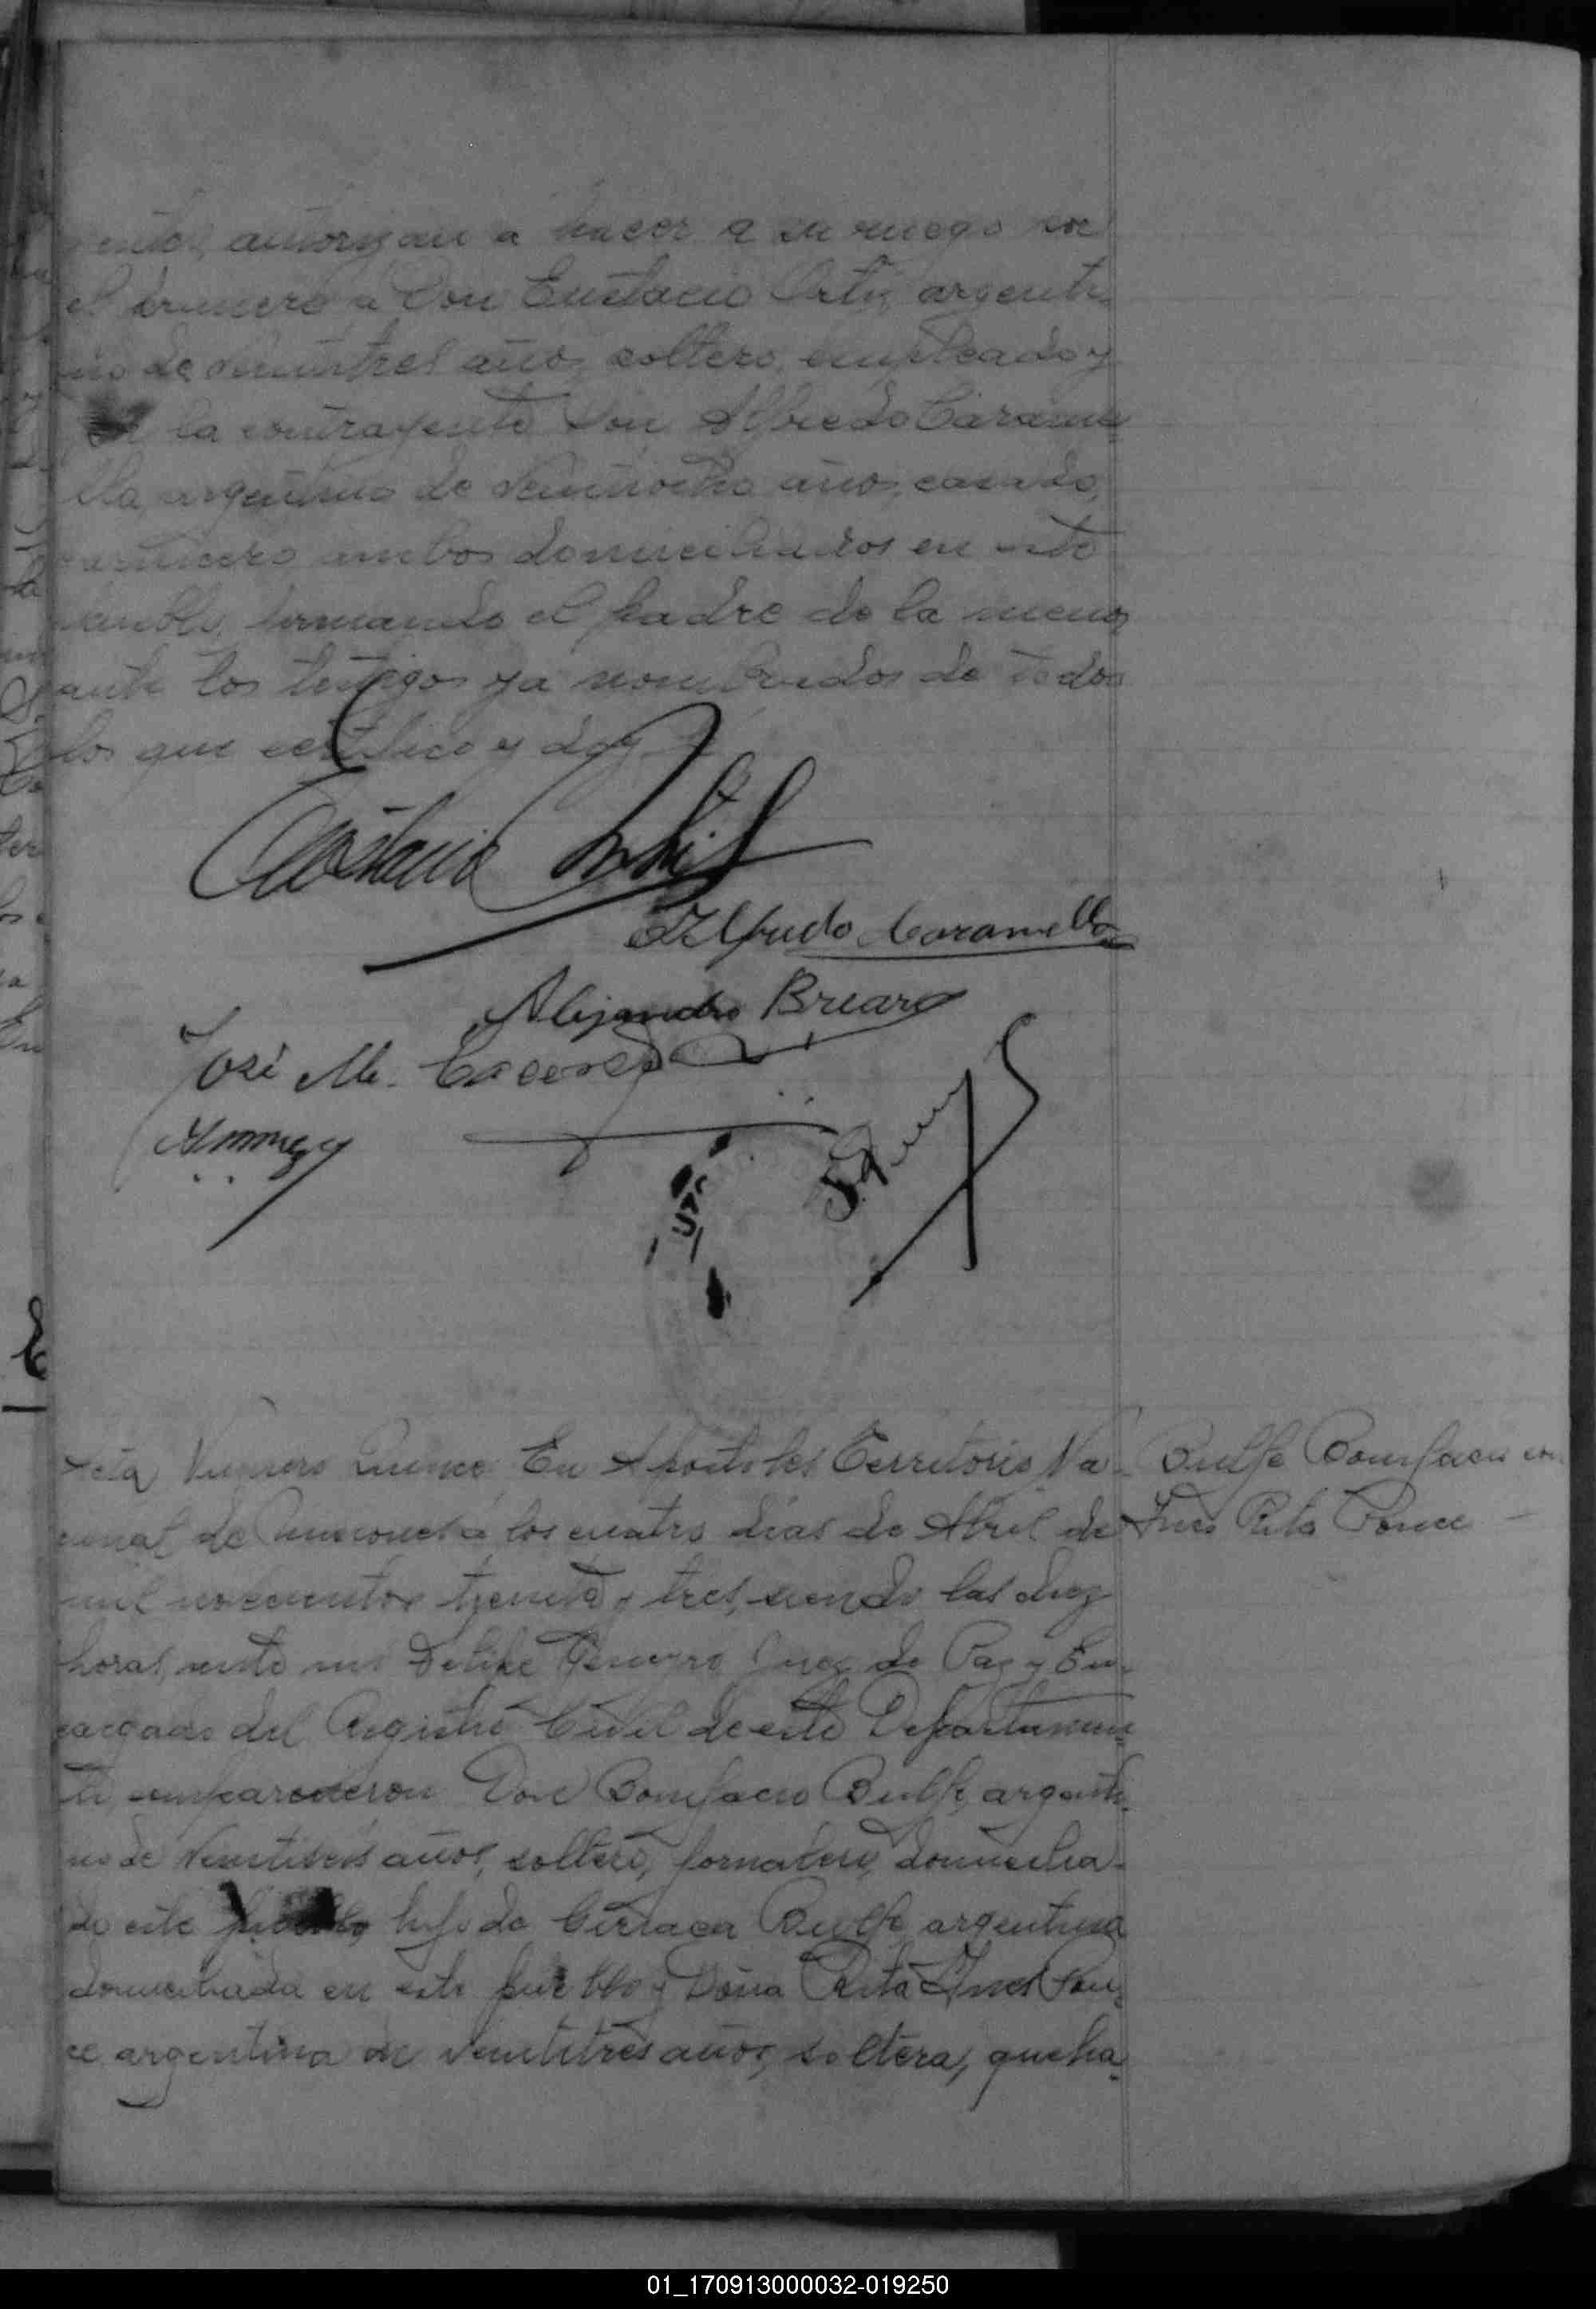 autorizan a hacer a su ruego por
el primero a Don Eustacio Ortiz argenti-
no de veintitres años, soltero, empleado y
la contrayente Don Alfredo Carame-
lla, argentino de veintiocho años, casado,
carnicero ambos domiciliados en este
pueblo, firmando el padre de la menor
ante los testigos ya nombrados de todos
los que certifico y doy
Eustacio Ortiz
Alfredo Caramella
Alejandro
José M.
Acta Numero Quince En Apostoles Territorio Na-
cional de Misiones a los cuatro dias de Abril de
mil novecientos treinta y tres, siendo las diez
horas, ante mi Juez de Paz y En-
cargado del Registro Civil de este Departamen-
to, comparecieron Don Bonifacio Bulfe, argenti-
no de veintiseis años, soltero, jornalero, domicilia-
do este pueblo hijo de Ciriaca Bulfe, argentina
domiciliada en este pueblo y Doña Rita Ines Pon-
ce argentina de veintitres años, soltera, queha-
Bulfe Bonifacio con
Ines Rita Ponce
01_170913000032-019250